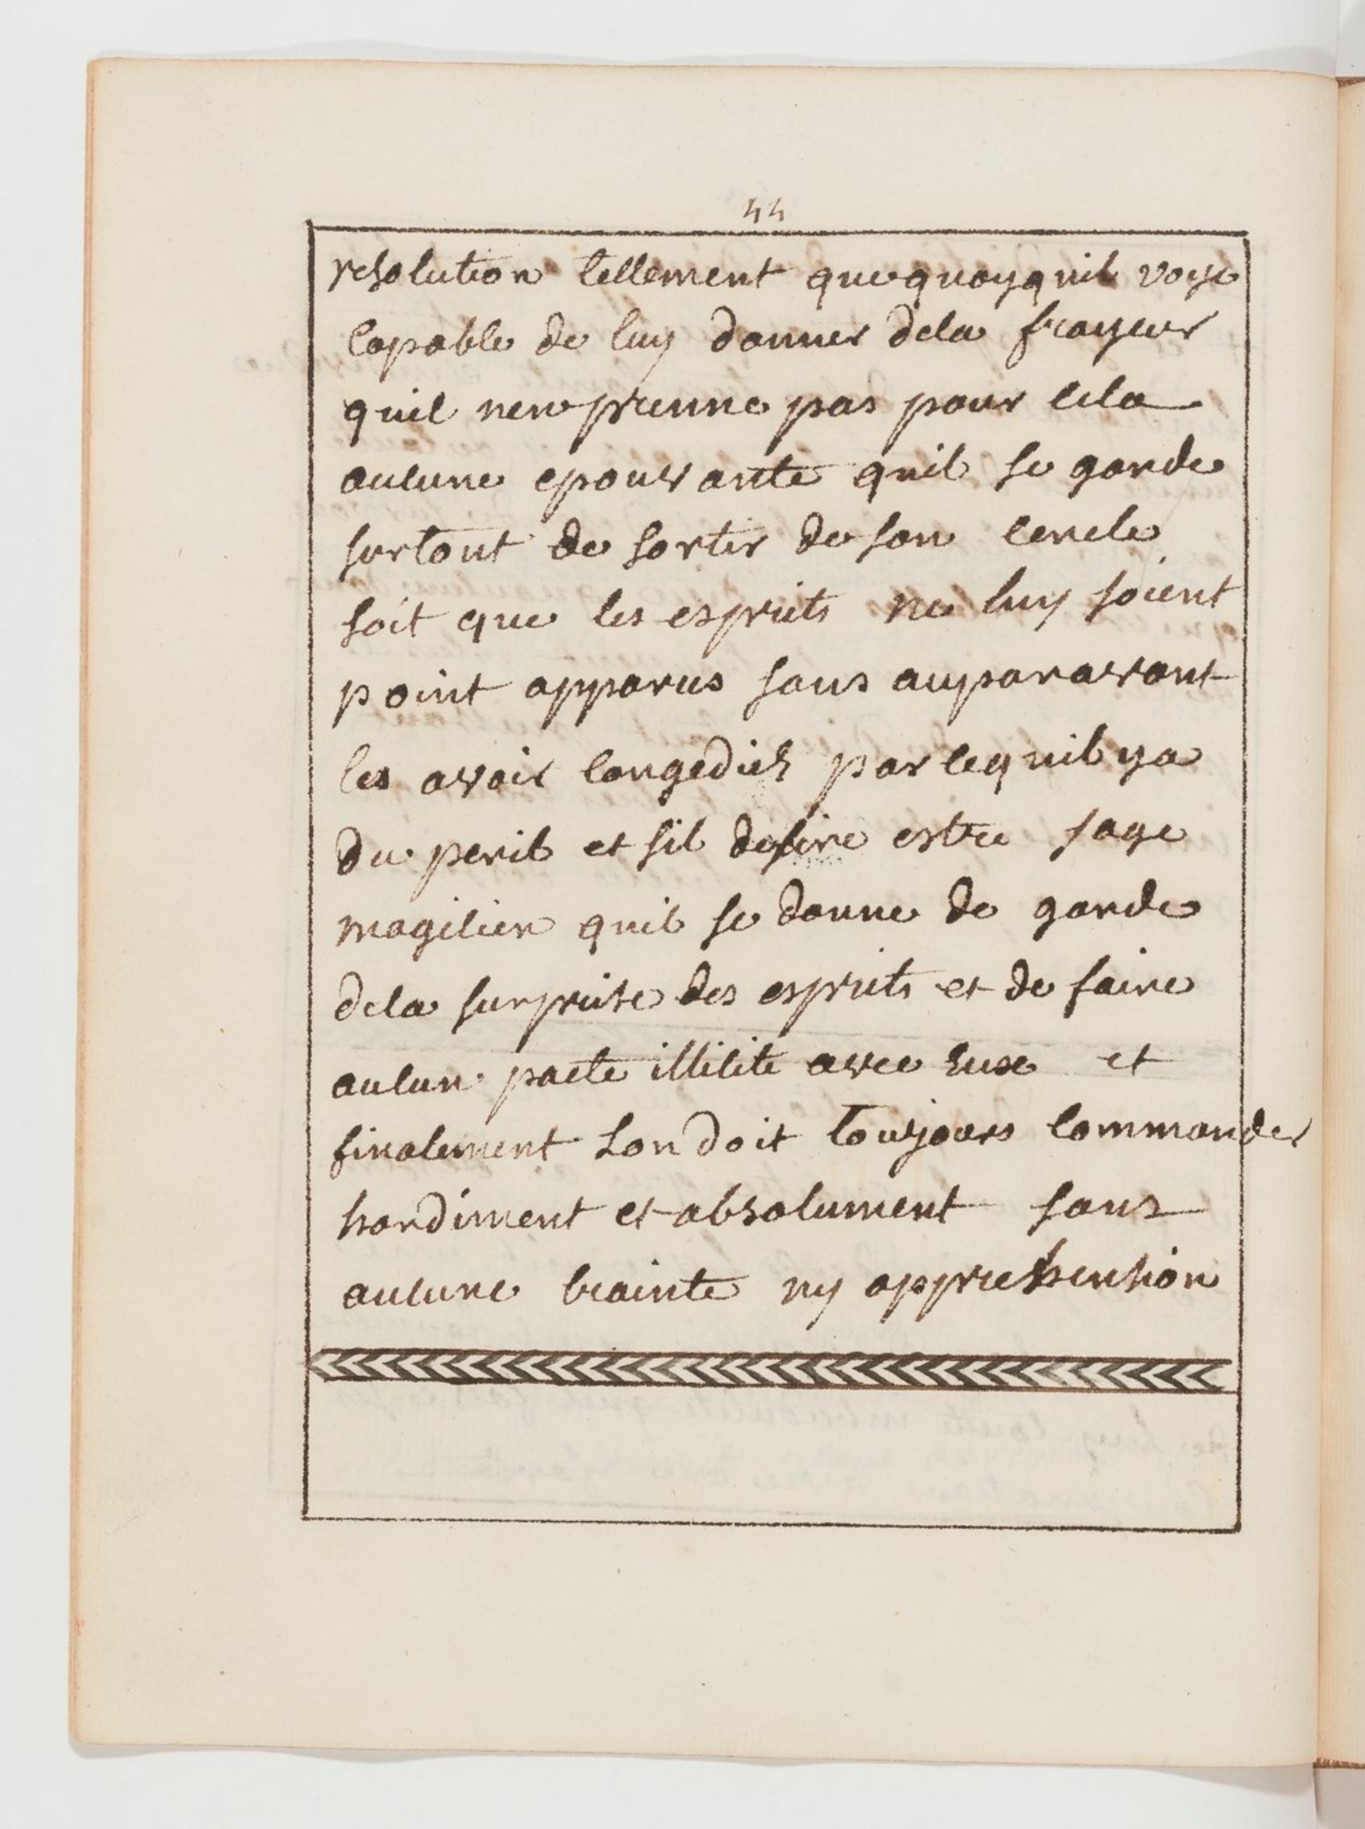 44
resolution tellement que quoy quil voye
capable de luy donner dela frayeur
quil nen prenne pas pour cela
aucune epouvante quil se garde
surtout de sortir de son cercle
soit que les esprits ne luy soient
point apparus sans auparavant
les avoir congediez parcequil ya
du peril et sil desire estre sage
magicien quil se donne de garde
dela surprise des esprits et de faire
aucun pacte illicite avec eux et
finalement lon doit toujours commander
hardiment et absolument sans
aucune crainte ny apprehension